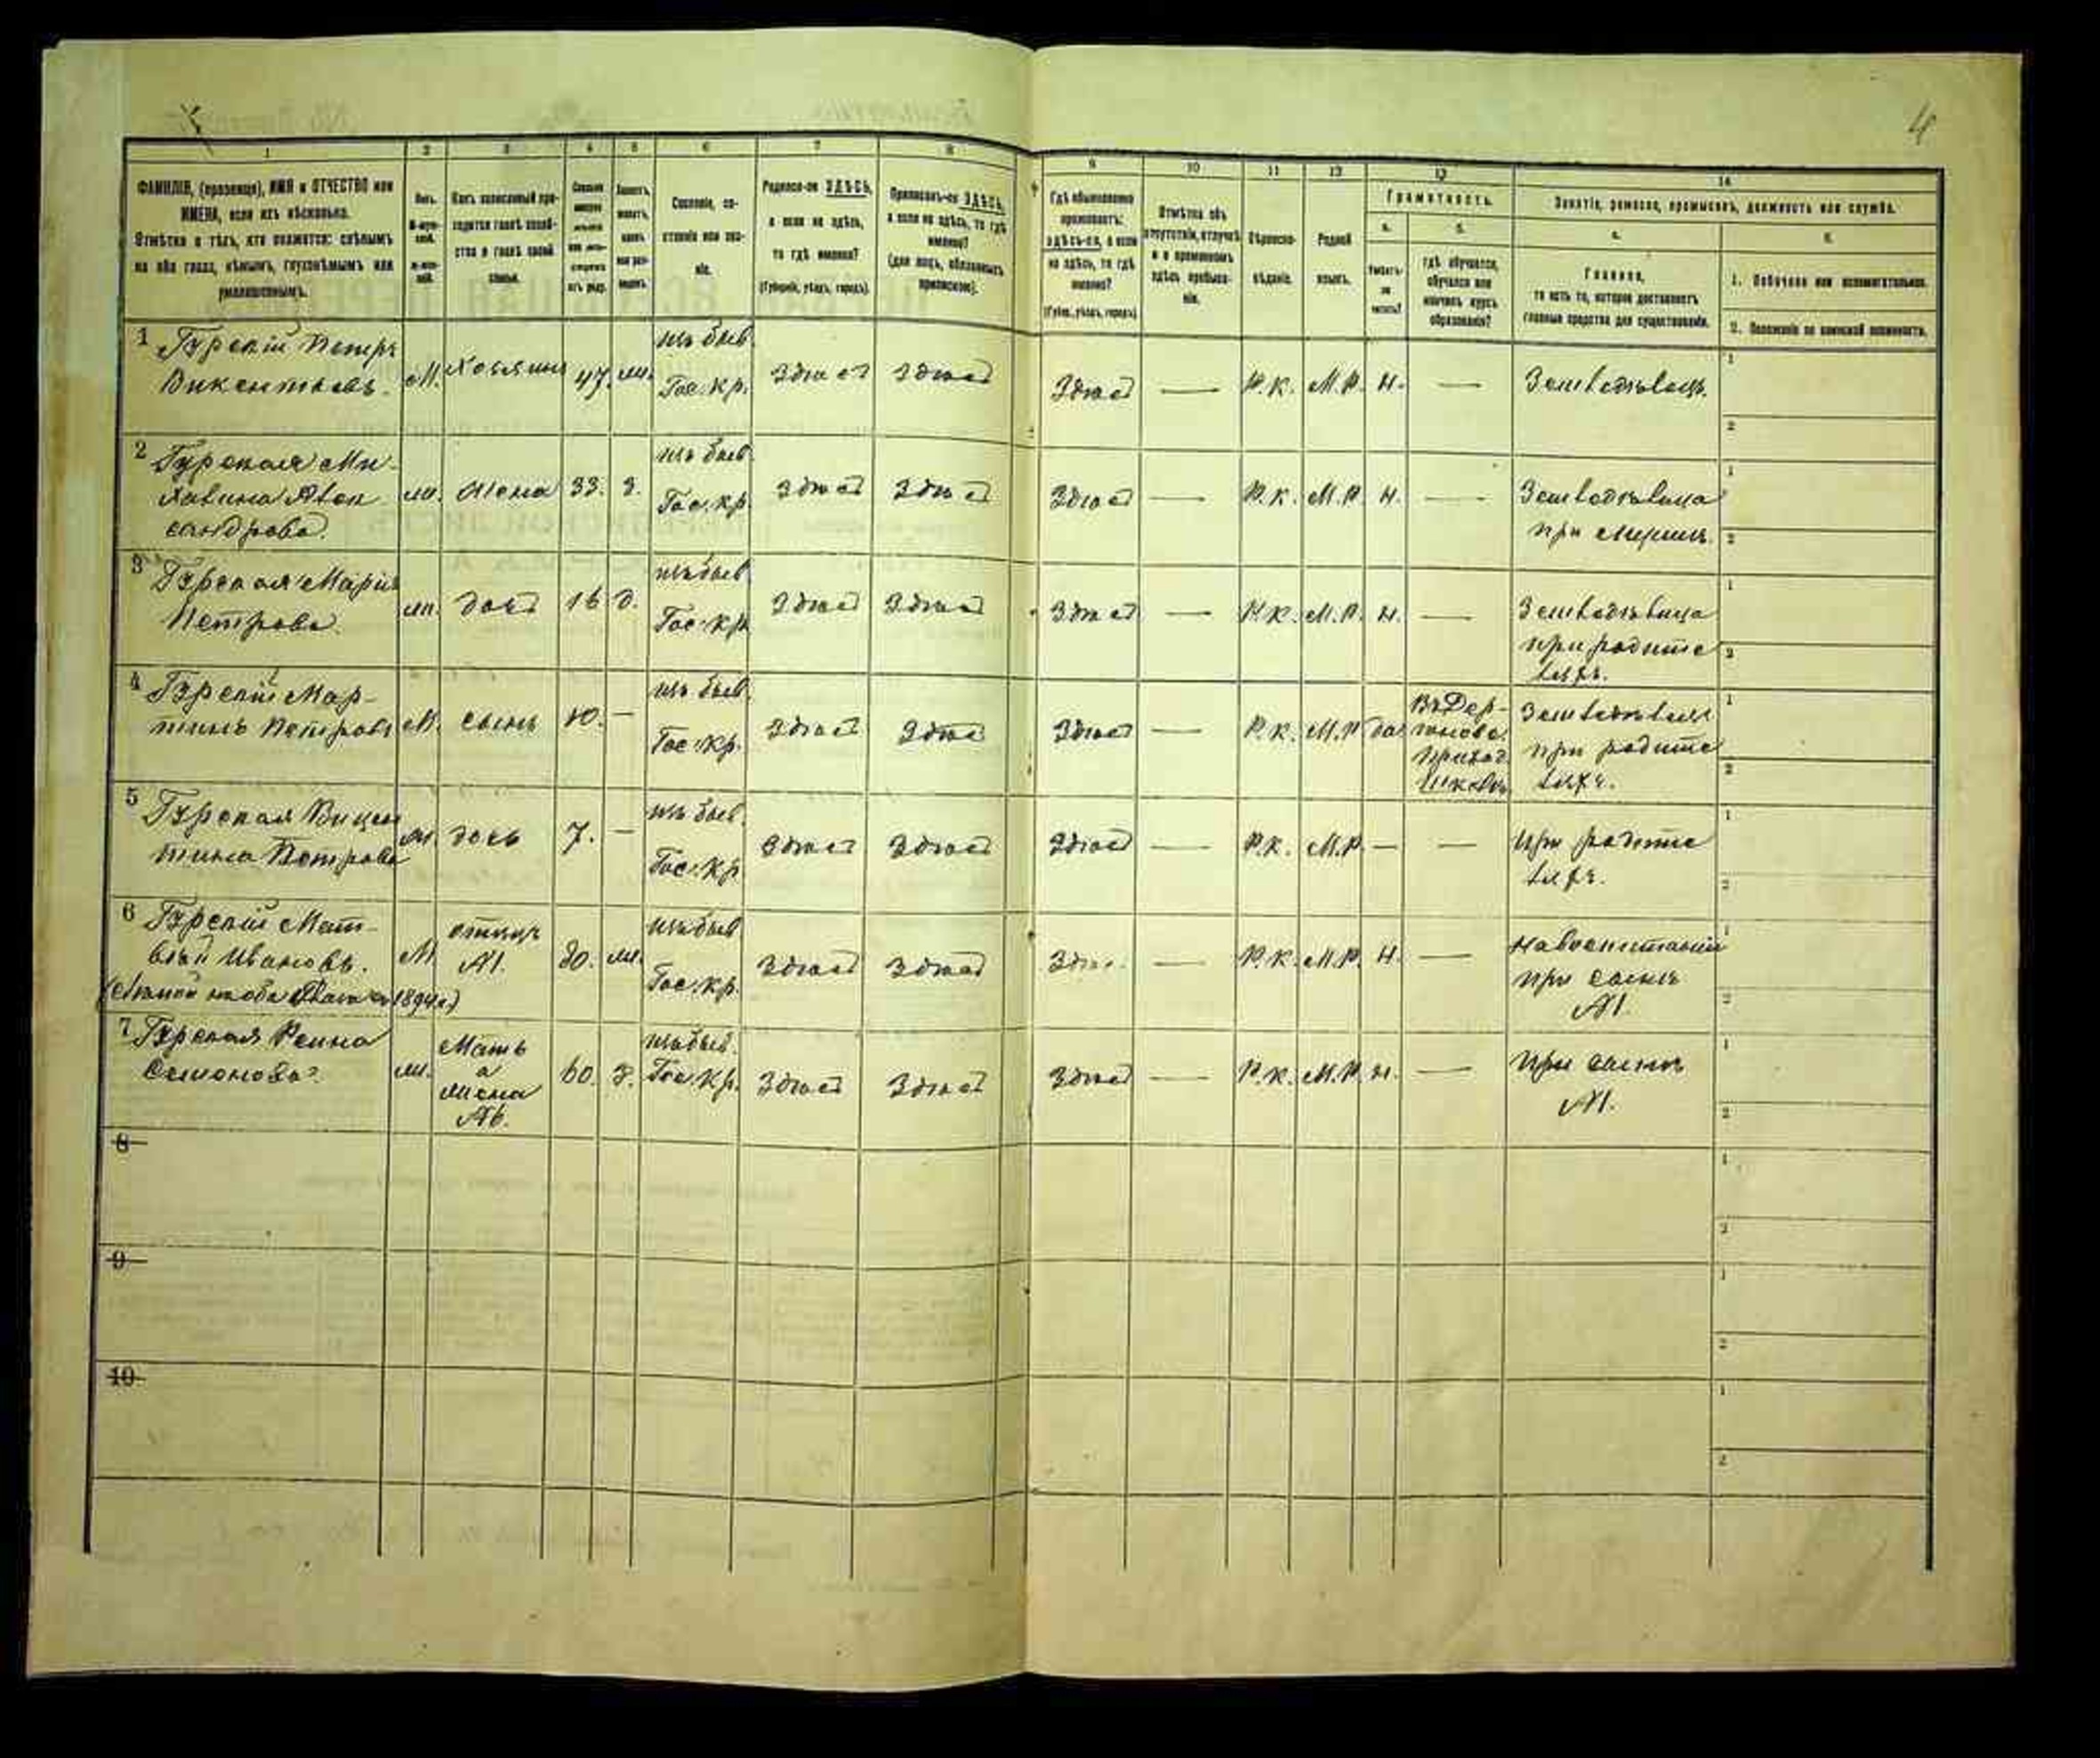 4
1 2 3 4 5 6 7 8 9 10 11 12 13 14
ФАМИЛІЯ, (прозвище), ИМЯ и ОТЧЕСТВО или
ИМЕНА, если ихъ нѣсколько.
Отмѣтка о тѣхъ, кто окажется: слѣпымъ
на оба глаза, нѣмымъ, глухонѣмымъ или
умалишеннымъ.
Полъ.
М-муж-
ской.
Ж-жен-
скій.
Какъ записанный при-
ходится главѣ хозяй-
ства и главѣ своей
семьи.
Сословіе, со-
стояніе или зва-
ніе.
Родился-ли ЗДѢСЬ,
а если не здѣсь,
то гдѣ именно?
(Губернія, уѣздъ, городъ).
Приписанъ-ли ЗДѢСЬ,
а если не здѣсь, то гдѣ
именно?
(для лицъ, обязанныхъ
припискою).
Гдѣ обыкновенно
проживаетъ:
здѣсь-ли, а если
не здѣсь, то гдѣ
именно?
(Губер., уѣздъ, городъ)
Отмѣтка объ
отсутствіи, отлучкѣ
и о временномъ
здѣсь пребыва-
ніи.
Вѣроиспо-
вѣданіе.
Родной
языкъ.
Грамотность.
а.
Умѣетъ-
ли
читать?
б.
гдѣ обучается,
обучался или
кончилъ курсъ
образованія?
Занятіе, ремесло, промыселъ, должность или служба.
а.
Главное,
то есть то, которое доставляетъ
главныя средства для существованія.
б.
1. Побочное или вспомогательное.
2. Положеніе по воинской повинности.
1 Гурскій Петръ
Викентьевъ.
М. Хозяинъ 47. ж. изъ быв.
Гос. кр. Здѣсь Здѣсь Здѣсь — Р.К. М.Р. н. — Земледѣлецъ.
2 Гурская Ми-
халина Алек
сандрова.
ж. жена 33. з. изъ быв.
Гос. кр. Здѣсь Здѣсь Здѣсь — Р.К. М.Р. н. — Земледѣлица
при мужѣ.
3 Гурская Марія
Петрова.
ж. дочь 16 д. изъ быв.
Гос. кр. Здѣсь Здѣсь Здѣсь — Р.К. М.Р. н. — Земледѣлица
при родите
ляхъ.
4 Гурскій Мар-
тинъ Петровъ
М. сынъ 10. — изъ быв.
Гос. кр. Здѣсь Здѣсь Здѣсь — Р.К. М.Р. да
приход.
при родите
ляхъ.
5 Гурская Вицен
тина Петрова
ж. дочь 7. — изъ быв.
Гос. кр. Здѣсь Здѣсь Здѣсь — Р.К. М.Р. — — при родите
ляхъ.
6 Гурскій Мат-
вѣй Ивановъ.
(слѣпой на оба глаза съ 1894 г.)
М отчим
№1. 80. ж. изъ быв
Гос. кр. Здѣсь Здѣсь Здѣсь — Р.К. М.Р. н. —
при сынѣ
№1.
7 Гурская
Семенова.
ж. Мать
а
жена
№6. 60. з. изъ быв.
Гос. кр. Здѣсь Здѣсь Здѣсь — Р.К. М.Р. н. — при сынѣ
№1.
8
9
10